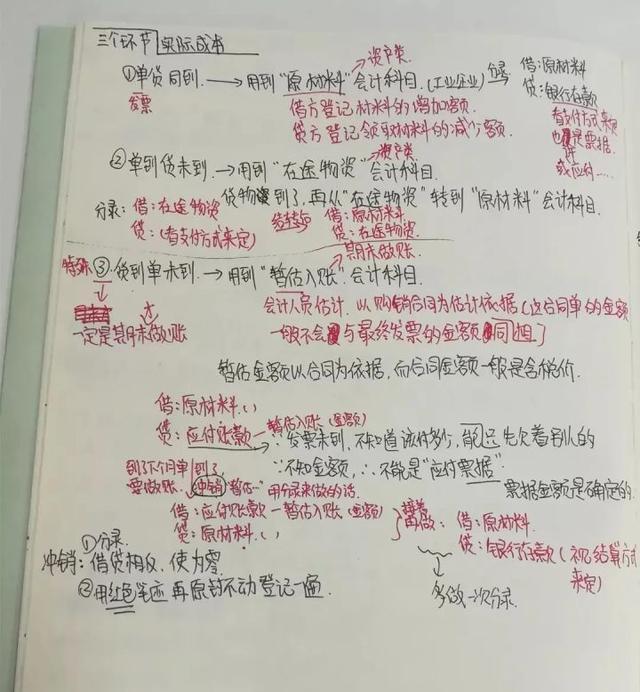 三个环节 实际成本
资产类
①单货同到. → 用到"原材料"会计科目.(工业企业) 分录 借:原材料
发票
贷:银行存款
借方登记材料的增加额.
看支付方式来定
贷方登记领取材料的减少额.
也许是票据.
或应付……
资产类
②单到货未到. → 用到"在途物资"会计科目.
货物到了,再从"在途物资"转到"原材料"会计科目.
分录:借:在途物资
借:原材料
贷:(看支付方式来定)
贷:在途物资
期末做账.
特殊③货到单未到. → 用到"暂估入账"会计科目.
会计人员估计.以购销合同为估计依据(这合同单的金额
一定是期末做账
一般不会与最终发票的金额同)
暂估金额以合同为依据,而合同金额一般是含税价.
借:原材料()
贷:应付账款—暂估入账(金额)
∵发票未到,不知道该付多少,能先欠着别人的
到了下个月单到了
∵不知金额,∴不能是"应付票据"
要做账. 冲销"暂估…"用分录来做的话.
票据金额是确定的.
借:应付账款—暂估入账(金额)
接着再做:借:原材料.
贷:原材料.()
贷:银行存款(视结算方式来定)
①分录.
冲销:借贷相反,使为零.
②用红色笔迹再原封不动登记一遍.
多做一次分录.